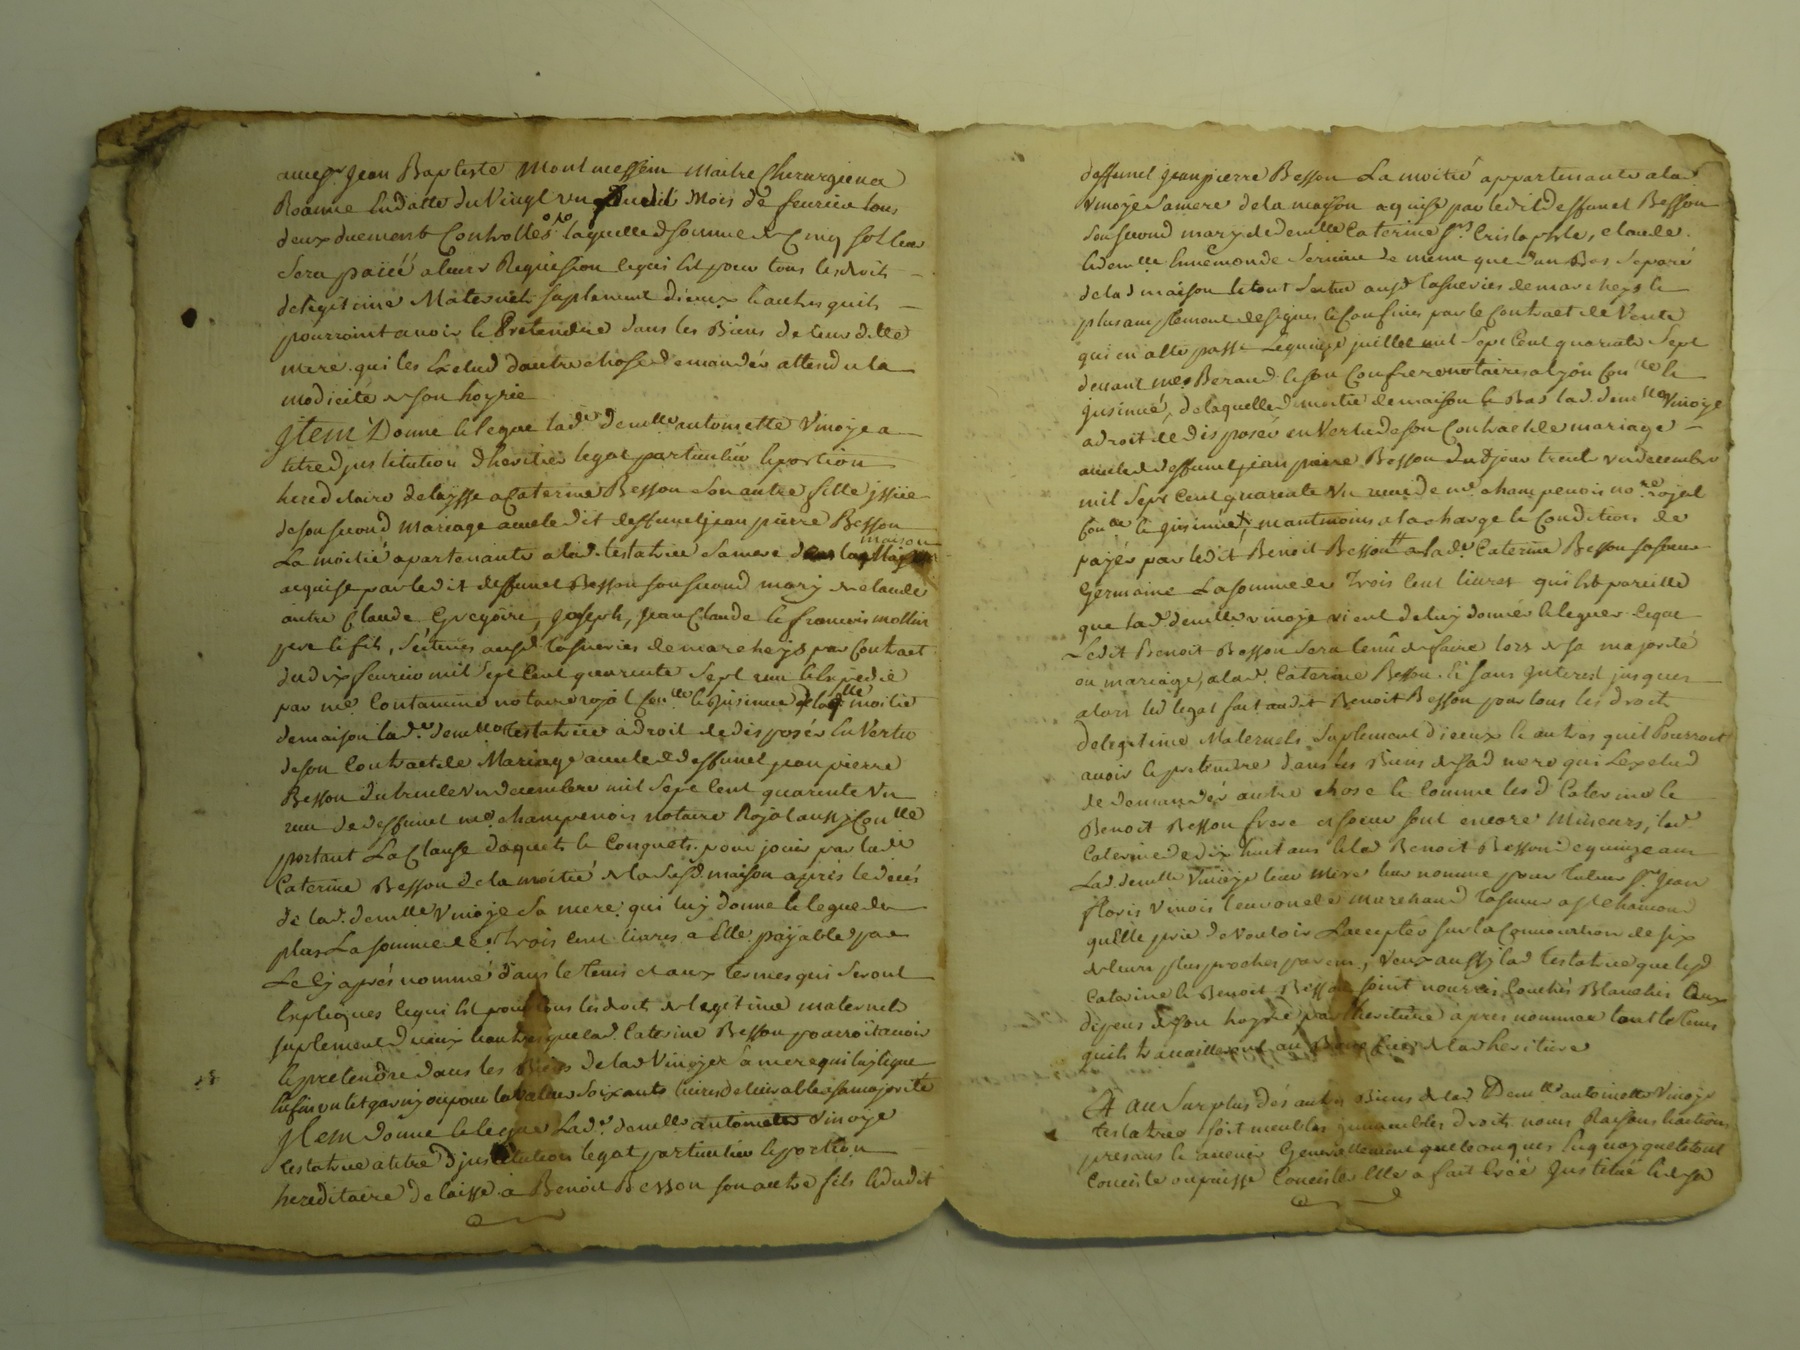 avec sr Jean Baptiste Montmessein Maitre Chirurgien a
Roanne En datte du Vingt un dudit Mois de feurier tous
deux duement Controllés laquelle d somme de Cinq sols leur
sera paiéé a leurs Requisition lequi Est pour tous les droits
de legitime Maternels suplement diceux Et autres quils
pourroint auoir Et Pretendre dans les Biens de leur ditte
mere qui les Exclud dautre chose demander attendu la
modicité de son hoyrie
Jtem Donne Et legue lade demlle antoinette Vinoye a
titre djnstitution dheritier legat particulier Et portion
hereditaire delaisse a Caterine Besson son autre fille jssüe
de son second Mariage auec le dit deffunct jean pierre Besson
La moitié apartenante a lad. testatrice sa mere maison
acquise par le dit deffunct Besson son second mary de claude
autre Claude Gregoire, Joseph, Jean Claude Et francois mollin
pere Et fils, scituée ausd. lasneries de marcheys par Contract
du dix feurier mil Sept Cent quarente Sept recu Et Expedié
par me Contamine notaire royal Conlle Et Jnsinué de laqlle moitié
de maison lad.e demlle testatrice a droit de disposer En Vertu
de son Contract de Mariage auec led deffunct jean pierre
Besson du trente Un decembre mil Sept Cent quarente Un
recu de deffunct me champenois notaire Royal aussy Conlle
portant La Clause daquets Et Conquets pour jouir par lade
Caterine Besson de la moitié de la susd. maison aprés le decés
de lad. demlle Vinoye Sa mere, qui luy donne Et legue de
plus La somme de Trois Cent livres a Elle payable par
Le Cy aprés nommé dans le tems et aux termes qui seront
Expliqués lequi Est pour tous les droits de legitime maternels
suplement diceux Et autres que lad. Caterine Besson pourroit auoir
Et pretendre dans les Biens de lad Vinoye sa mere qui luy legue
soixante livres
Jtem donne Et legue Lad.e demlle antoinette Vinoye
testatrice a titre djnstitution legat particulier Et portion
hereditaire delaisse a Benoit Besson son autre fils Et dudit
deffunct jean pierre Besson La moitié appartenante a lad
Vinoye sa mere de la maison aquise par ledit deffunct Besson
son second mary de demlle Caterine srs Cristophle, claude
Et demlle Ennemonde de meme que dun Bas separé
de lad maison Et tout scitué ausd lasneries de marcheys Et
plus amplement designés Et Confinés par le Contract de Vente
qui en a été passé Le quinze juillet mil Sept Cent quarente Sept
deuant mes Beraud Et son Confrere notaires a lyon Et
jnsinué, de laquelle d moitié de maison Et Bas lad. demlle Vinoye
a droit de disposer en Vertu de son Contract de mariage
auec led deffunct jean pierre Besson dud jour trente un decembre
mil Sept Cent quarente Un recu de me champenois nore royal
Et jnsinué, neantmoins a la charge Et Condition de
payer par le dit Benoit Besson a lade Caterine Besson sa soeur
Germaine La somme de Trois Cent livres qui Est pareille
que lad demlle vinoye vient de luy donner Et leguer lequel
Ledit Benoit Besson sera tenu de faire lors de sa majorité
ou mariage, a lad. Caterine Besson Et sans Jnterest jusques
alors led legat fait audit Benoit Besson pour tous les droits
de legitime Maternels Suplement diceux Et autres quil Pourroit
auoir Et pretendre dans les Biens de sad mere qui Lexclud
de demander autre chose Et Comme lesd. Caterine Et
Benoit Besson frere et soeur sont encore Mineurs, lad.
Caterine de dix huit ans Et led Benoit Besson de quinze ans
Lad. demlle Vinoye leur Mere leur nomme pour Tuteur sr Jean
floris Vinois leur oncle marchand a st chamond
quElle prie de Vouloir Laccepter sur la Conuocation de six
de leurs plus proches parens, Veux aussy lad testatrice que lesd
Caterine Et Benoit Besson soint nourris Couchés Blanchis aux
dépens de son hoyrie par Lheritiere aprés nommée tout le tems
quils trauailleront au de lad heritiere
Et au Surplus dés autres Biens de lad Demlle antoinette Vinoye
testatrice soit meubles jmmeubles droits noms Raisons Et actions
presans Et auenir Generallement quelconques En quoy que le tout
Conciste ou puisse Concister Elle a fait Créé Jnstitué Et de sa